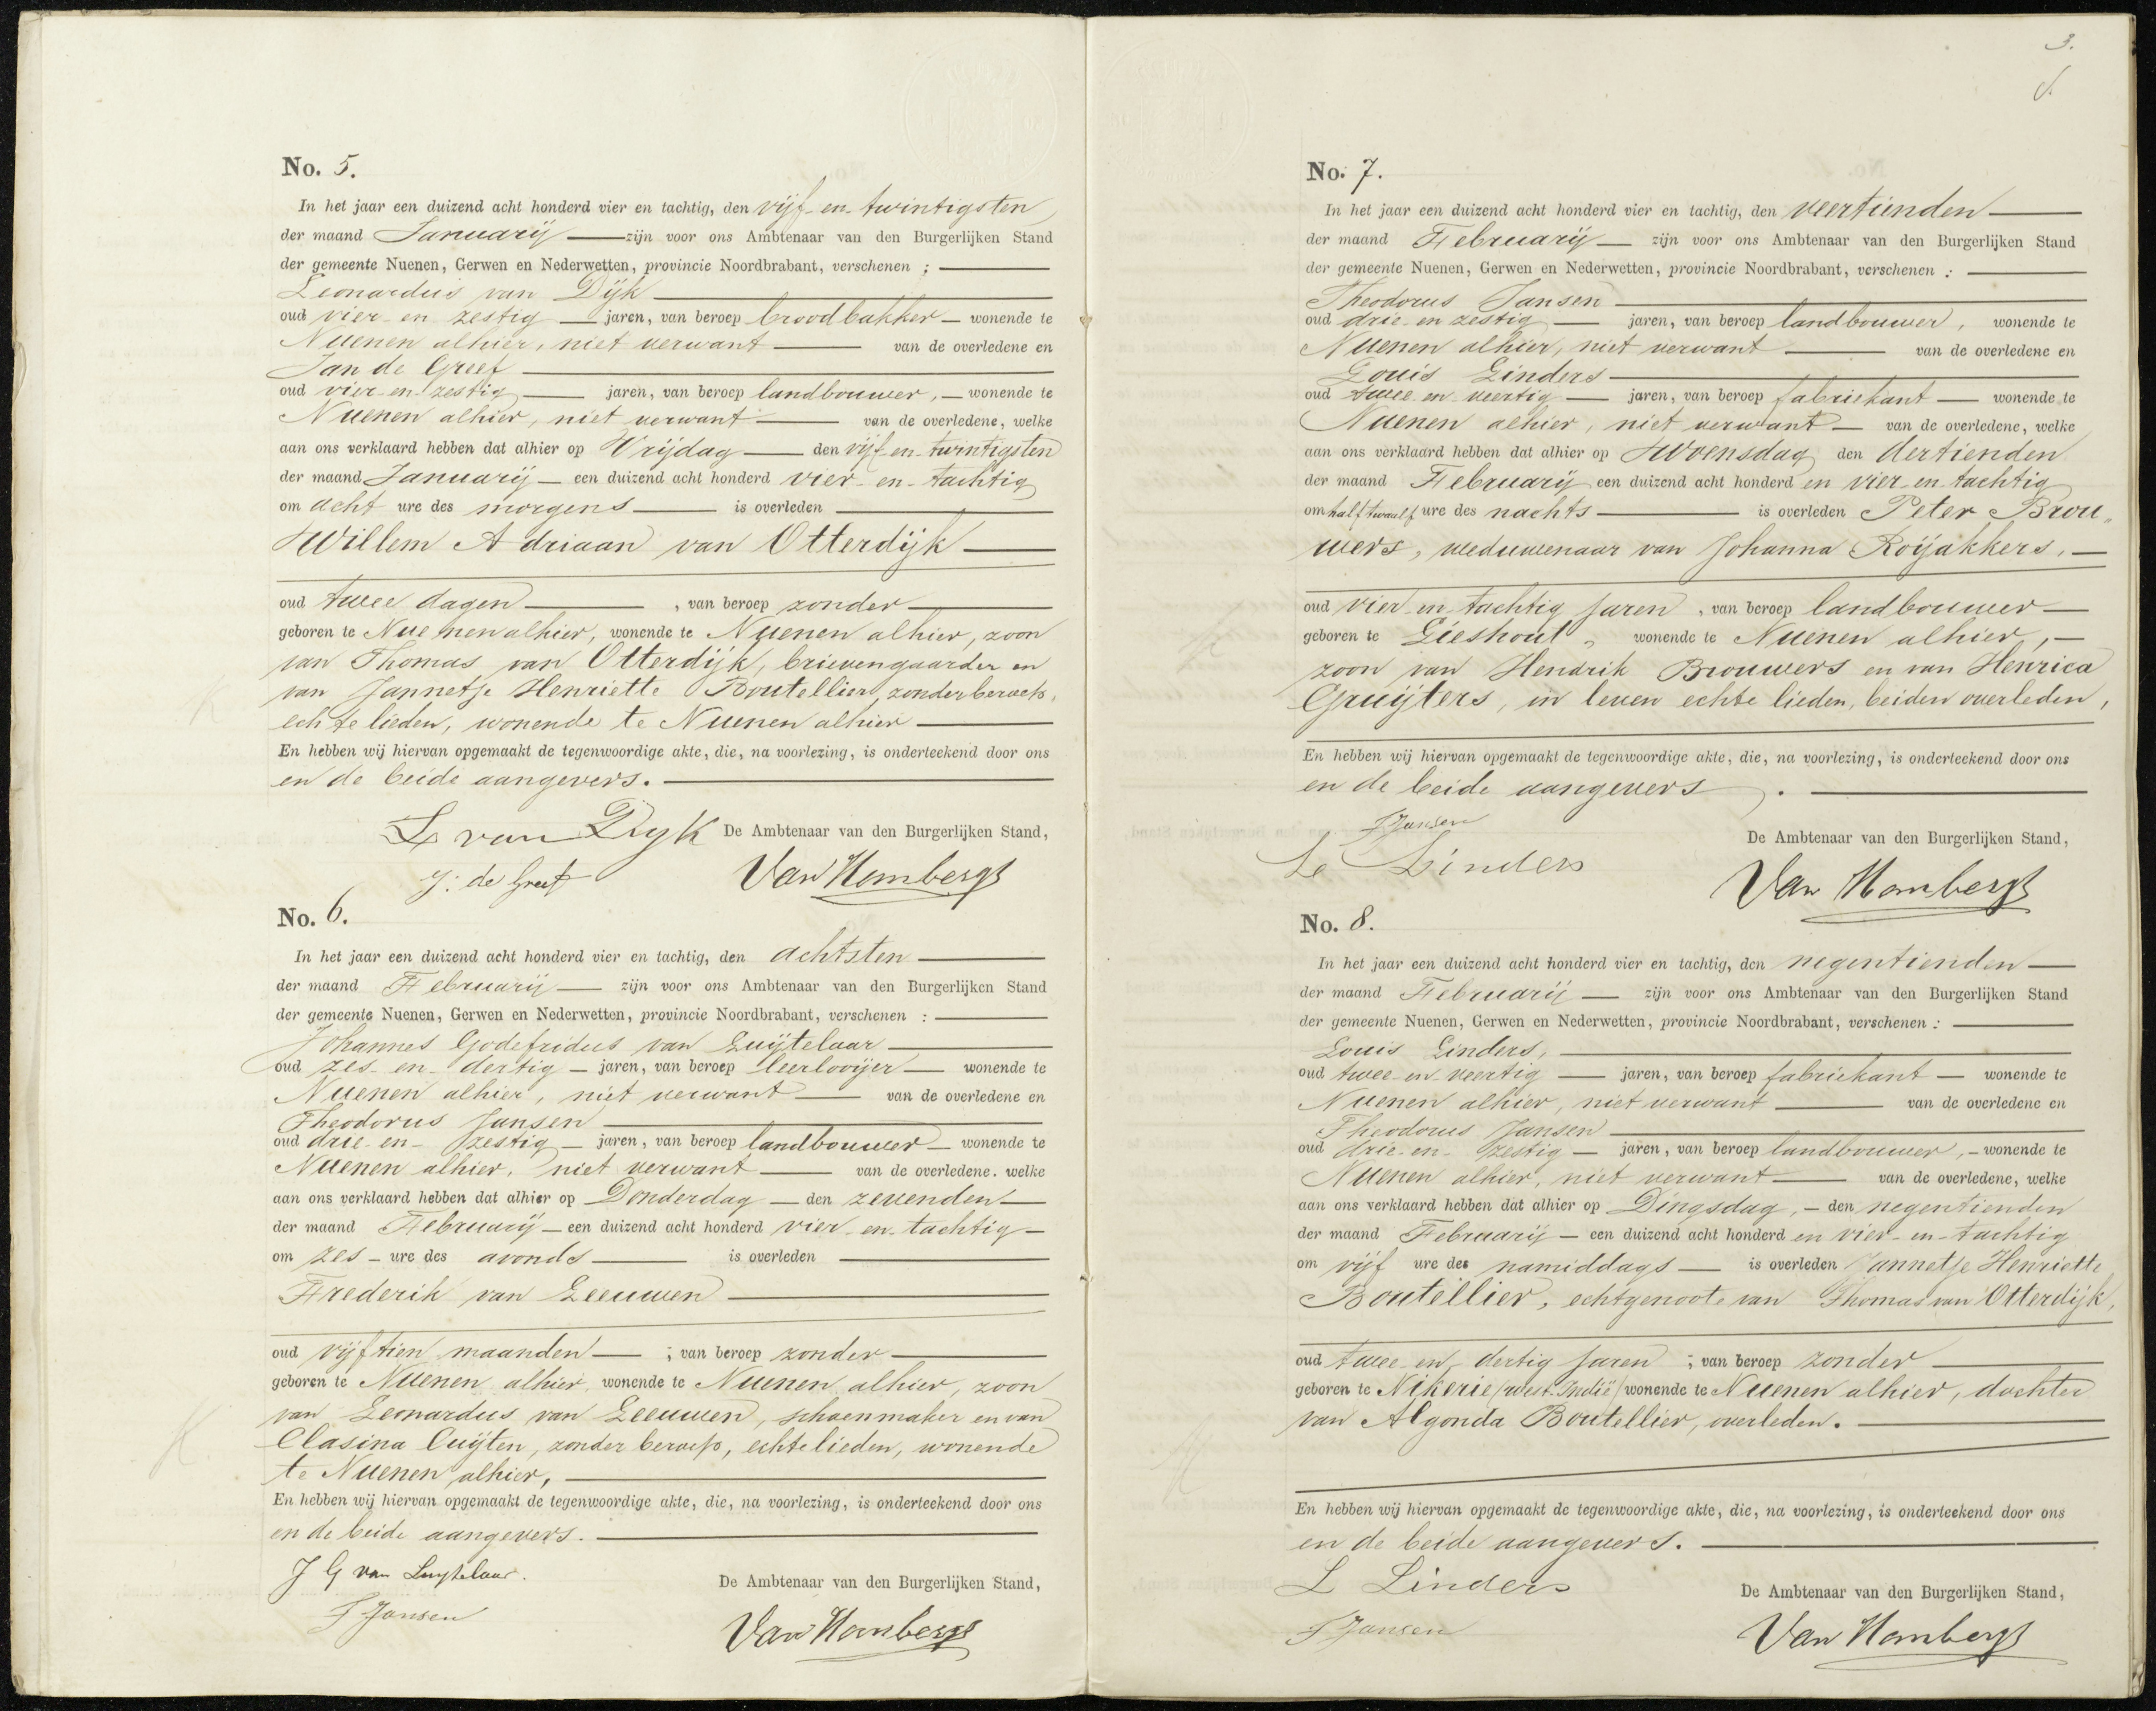 No. 5.
In het jaar een duizend acht honderd vier en tachtig, den vijf-en-twintigsten
der maand Januarij — zijn voor ons Ambtenaar van den Burgerlijken Stand
der gemeente Nuenen, Gerwen en Nederwetten, provincie Noordbrabant, verschenen ; —
Leonardus van Dijk —
oud vier en zestig — jaren, van beroep broodbakker — wonende te
Nuenen alhier, niet verwant — van de overledene en
Jan de Greef —
oud vier-en-zestig — jaren, van beroep landbouwer, — wonende te
Nuenen alhier, niet verwant — van de overledene, welke
aan ons verklaard hebben dat alhier op Vrijdag — den vijf-en-twintigsten
der maand Januarij — een duizend acht honderd vier-en-tachtig
om acht ure des morgens — is overleden —
Willem Adriaan van Otterdijk —
oud twee dagen — , van beroep zonder —
geboren te Nuenen alhier, wonende te Nuenen alhier, zoon
van Thomas van Otterdijk, brievengaarder en
van Jannetje Henriette Boutellier, zonder beroep,
echte lieden, wonende te Nuenen alhier —
En hebben wij hiervan opgemaakt de tegenwoordige akte, die, na voorlezing, is onderteekend door ons
en de beide aangevers. —
L van Dyk De Ambtenaar van den Burgerlijken Stand,
J: de Greef Van Hombergh
No. 6.
In het jaar een duizend acht honderd vier en tachtig, den achtsten —
der maand Februarij — zijn voor ons Ambtenaar van den Burgerlijken Stand
der gemeente Nuenen, Gerwen en Nederwetten, provincie Noordbrabant, verschenen : —
Johannes Godefridus van Luijtelaar —
oud zes-en-dertig — jaren, van beroep leerlooijer — wonende te
Nuenen alhier, niet verwant — van de overledene en
Theodorus Jansen —
oud drie-en-zestig — jaren, van beroep landbouwer — wonende te
Nuenen alhier, niet verwant — van de overledene, welke
aan ons verklaard hebben dat alhier op Donderdag — den zevenden —
der maand Februarij — een duizend acht honderd vier-en-tachtig —
om zes — ure des avonds — is overleden —
Frederik van Leeuwen —
oud vijftien maanden — ; van beroep zonder —
geboren te Nuenen alhier, wonende te Nuenen alhier, zoon
van Leonardus van Leeuwen, schoenmaker en van
Clasina Cuijten, zonder beroep, echte lieden, wonende
te Nuenen alhier, —
En hebben wij hiervan opgemaakt de tegenwoordige akte, die, na voorlezing, is onderteekend door ons
en de beide aangevers. —
J G van Luytelaar.
De Ambtenaar van den Burgerlijken Stand,
T Jansen
Van Hombergh
3.
No. 7.
In het jaar een duizend acht honderd vier en tachtig, den veertienden —
der maand Februarij — zijn voor ons Ambtenaar van den Burgerlijken Stand
der gemeente Nuenen, Gerwen en Nederwetten, provincie Noordbrabant, verschenen : —
Theodorus Jansen —
oud drie-en zestig — jaren, van beroep landbouwer, wonende te
Nuenen alhier, niet verwant — van de overledene en
Louis Linders —
oud twee-en-veertig — jaren, van beroep fabriekant — wonende te
Nuenen alhier, niet verwant — van de overledene, welke
aan ons verklaard hebben dat alhier op Woensdag den dertienden
der maand Februarij een duizend acht honderd en vier-en-tachtig
om half twaalf ure des nachts — is overleden Peter Brou„
wers, weduwenaar van Johanna Roijakkers, —
oud vier-en-tachtig jaren , van beroep landbouwer —
geboren te Lieshout, wonende te Nuenen alhier, —
zoon van Hendrik Brouwers en van Henrica
Gruijters, in leven echte lieden, beiden overleden,
En hebben wij hiervan opgemaakt de tegenwoordige akte, die, na voorlezing, is onderteekend door ons
en de beide aangevers . —
T Jansen
De Ambtenaar van den Burgerlijken Stand,
Linders
Van Hombergh
No. 8.
In het jaar een duizend acht honderd vier en tachtig, den negentienden —
der maand Februarij — zijn voor ons Ambtenaar van den Burgerlijken Stand
der gemeente Nuenen, Gerwen en Nederwetten, provincie Noordbrabant, verschenen : —
Louis Linders, —
oud twee-en-veertig — jaren, van beroep fabriekant — wonende te
Nuenen alhier, niet verwant — van de overledene en
Theodorus Jansen —
oud drie-en-zestig — jaren, van beroep landbouwer, — wonende te
Nuenen alhier, niet verwant — van de overledene, welke
aan ons verklaard hebben dat alhier op Dingsdag, — den negentienden
der maand Februarij — een duizend acht honderd en vier-en-tachtig
om vijf ure des namiddags — is overleden Jannetje Henriette
Boutellier, echtgenoote van Thomas van Otterdijk,
oud twee-en-dertig jaren ; van beroep zonder —
geboren te Nikerie /West-Indië/ wonende te Nuenen alhier, dochter
van Algonda Boutellier, overleden. —
En hebben wij hiervan opgemaakt de tegenwoordige akte, die, na voorlezing, is onderteekend door ons
en de beide aangevers. —
L Linders
De Ambtenaar van den Burgerlijken Stand,
T Jansen
Van Hombergh